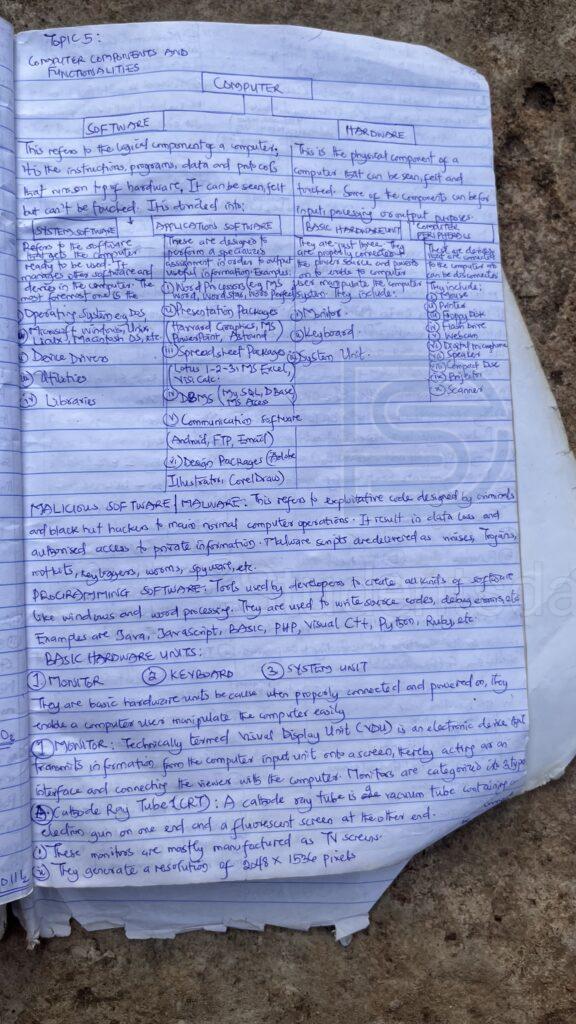 TOPIC 5:
COMPUTER COMPONENTS AND
FUNCTIONALITIES
COMPUTER
SOFTWARE
This refers to the logical component of a computer.
It is the instructions, programs, data and protocols
that run on top of hardware. It can be seen, felt
but can't be touched. It is divided into:
HARDWARE
This is the physical component of a
computer that can be seen, felt and
touched. Some of the components can be for
input, processing or output purposes.
SYSTEM SOFTWARE
Refers to the software
that gets the computer
ready to be used. It
manages other software and
devices in the computer. The
most foremost one is the
i) Operating System e.g DOS
Microsoft Windows, Unix,
Linux, Macintosh OS, etc.
ii) Device Drivers
iii) Utilities
iv) Libraries
APPLICATIONS SOFTWARE
These are designed to
perform a specialized
assignment in order to output
useful information. Examples:
i) Word Processors (e.g MS
Word, WordStar, Word Perfect)
ii) Presentation Packages
(Harvard Graphics, MS
PowerPoint, Astound)
iii) Spreadsheet Package
(Lotus 1-2-3, MS Excel,
Visi Calc.
iv) DBMS (My SQL, DBase
MS Access
v) Communication Software
(Android, FTP, Email)
vi) Design Packages (Adobe
Illustrator, CorelDraw)
BASIC HARDWARE UNIT
They are just three. They
are properly connected
the power source and
to enable to computer
user manipulate the computer
system. They include:
i) Monitor
ii) Keyboard
iii) System Unit.
COMPUTER
PERIPHERALS
These are devices
that are connected
to the computer and
can be disconnected
They include:
i) Mouse
ii) Printer
iii) Floppy Disk
iv) Flash drive
v) Webcam
vi) Digital microphone
vii) Speaker
viii) Compact Disc
ix) Projector
x) Scanner
MALICIOUS SOFTWARE/MALWARE: This refers to exploitative code designed by criminals
and black hat hackers to maim normal computer operations. It result in data loss and
authorised access to private information. Malware scripts are delivered as viruses, Trojans,
rootkits, keyloggers, worms, spyware, etc.
PROGRAMMING SOFTWARE: Tools used by developers to create all kinds of software
like windows and word processing. They are used to write source codes, debug errors, etc
Examples are Java, Javascript, BASIC, PHP, Visual C++, Python, Ruby, etc.
BASIC HARDWARE UNITS:
1 MONITOR 2 KEYBOARD 3 SYSTEM UNIT
They are basic hardware units because when properly connected and powered on, they
enable a computer user manipulate the computer easily
1 MONITOR: Technically termed Visual Display Unit (VDU) is an electronic device that
transmits information from the computer input unit onto a screen, thereby acting as an
interface and connecting the viewer with the computer. Monitors are categorised into 3 types
A Cathode Ray Tube (CRT): A cathode ray tube is a vacuum tube containing
electron gun on one end and a fluorescent screen at the other end.
i) These monitors are mostly manufactured as TV screens.
ii) They generate a resolution of 2048 x 1536 pixels